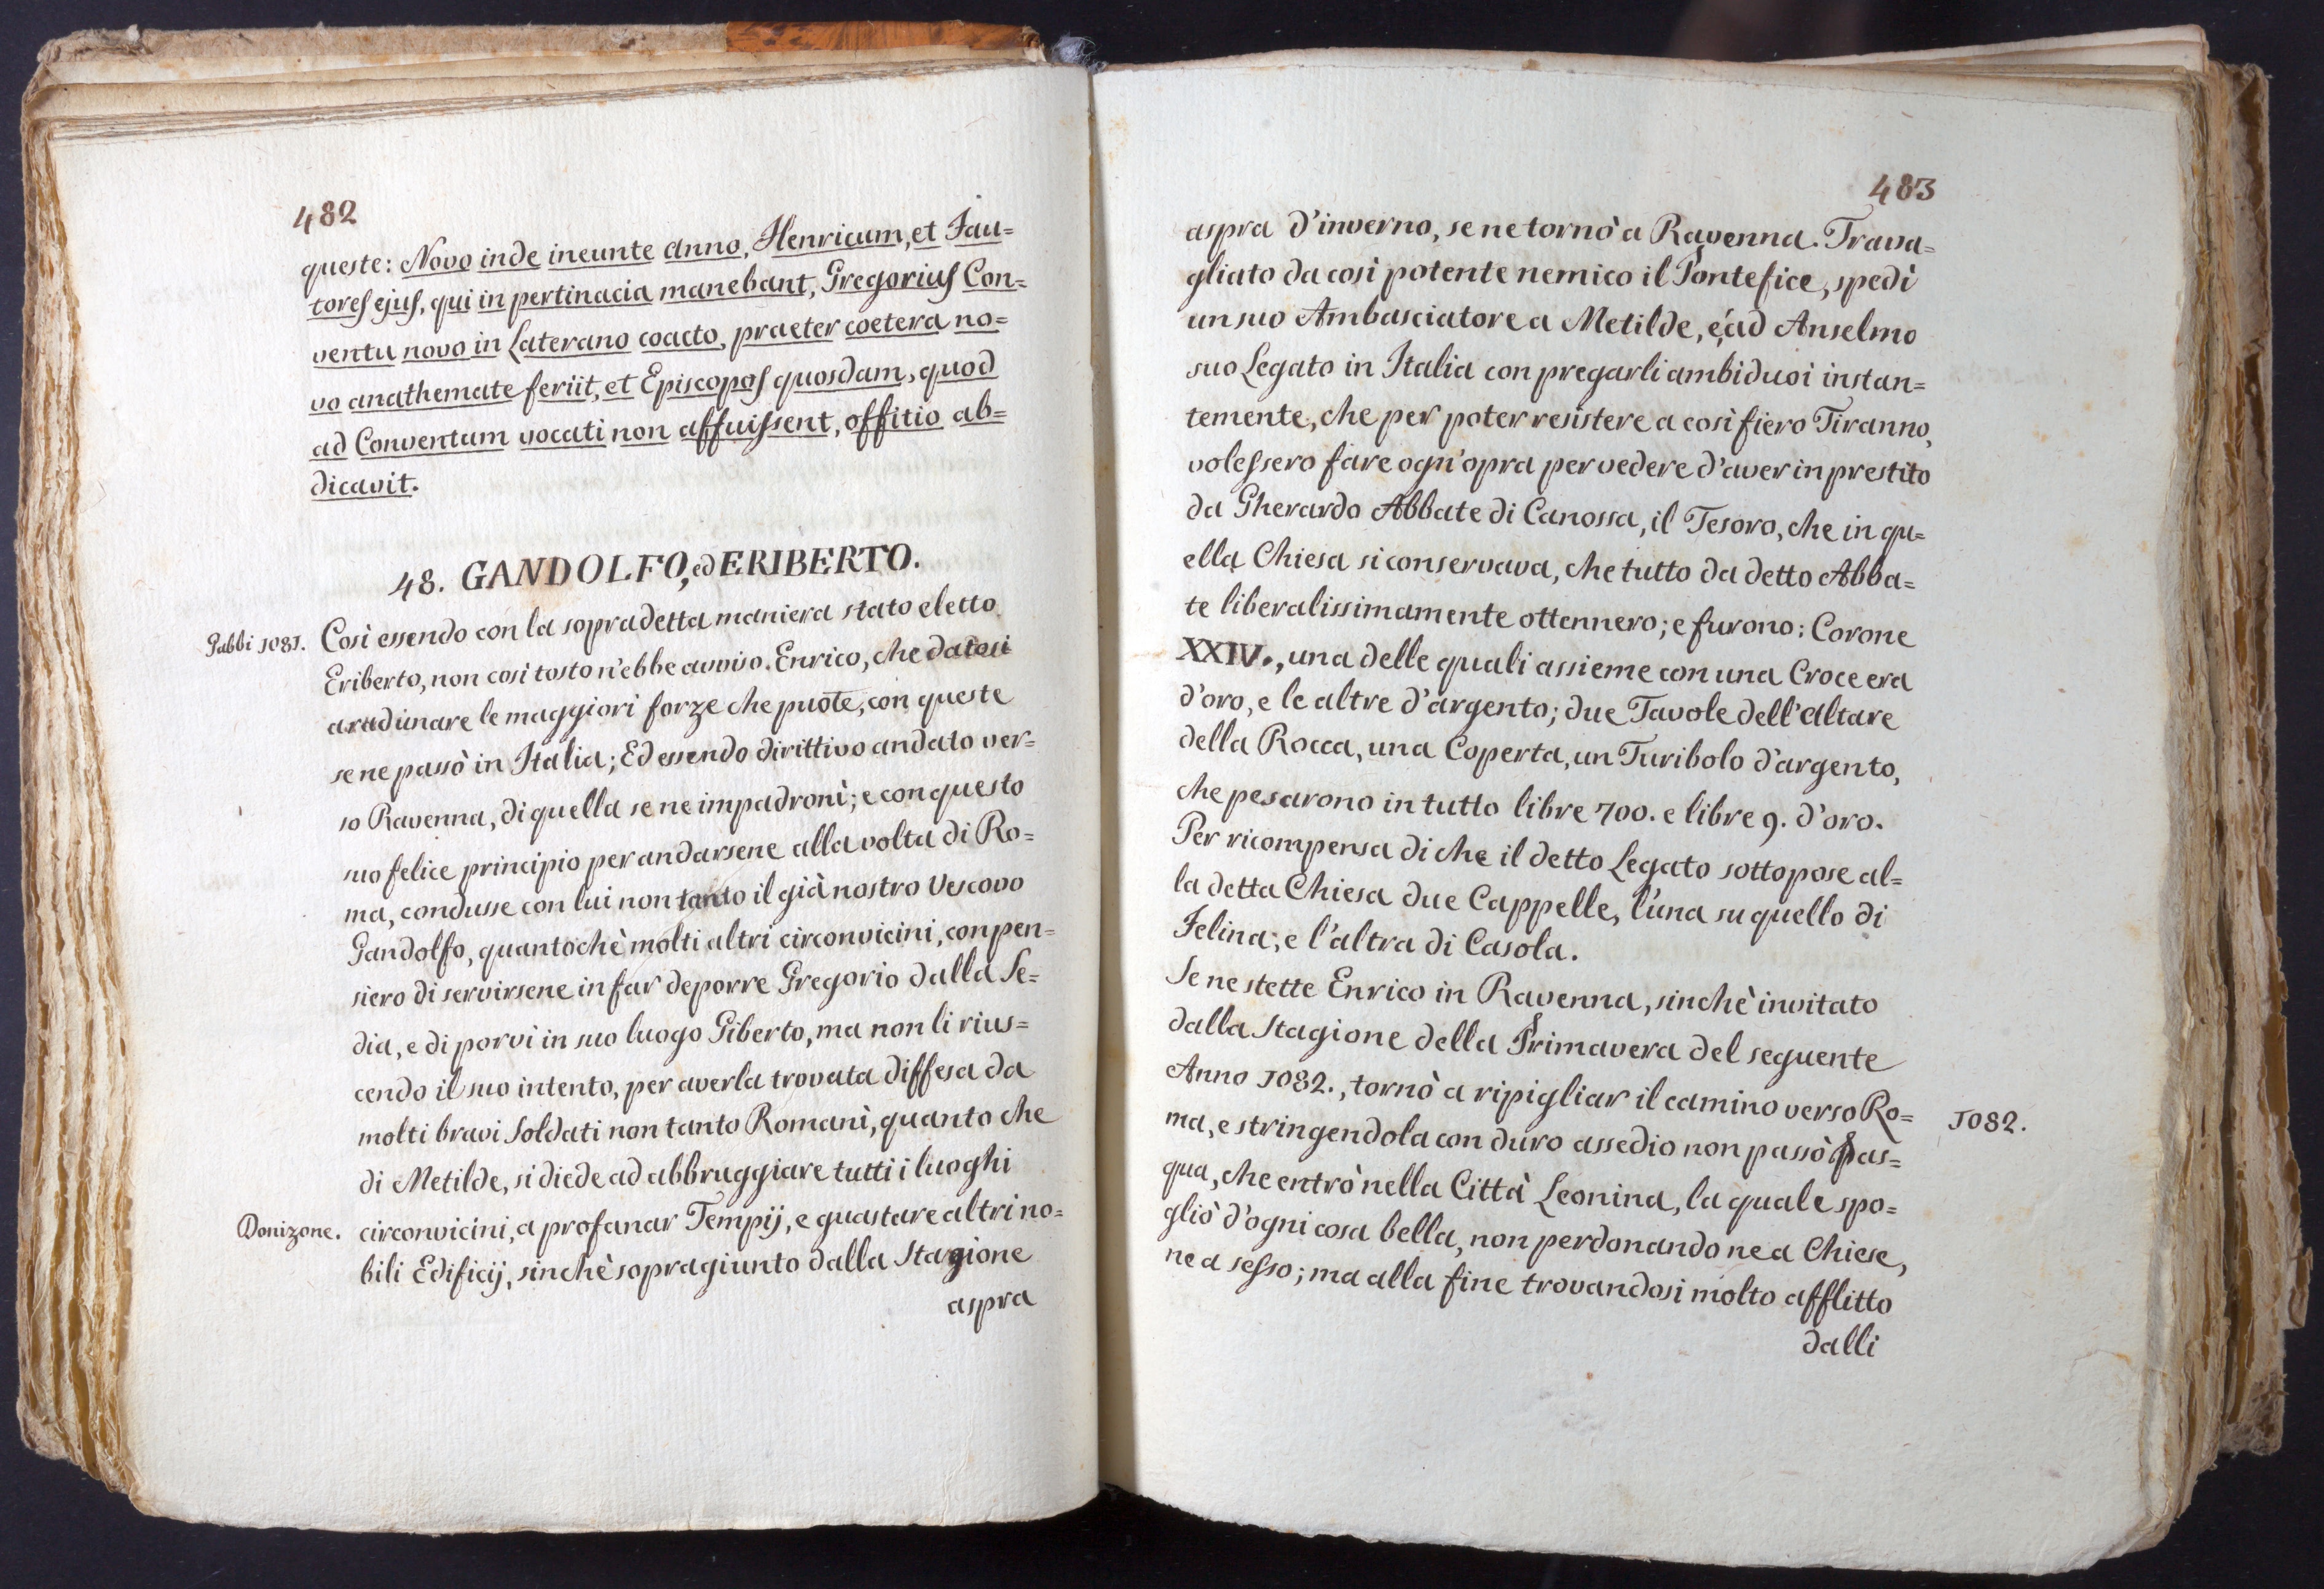 482
queste: Novo inde ineunte anno, Henricum, et Fau=
tores ejus, qui in pertinacia manebant, Gregorius Con=
ventu novo in Laterano coacto, praeter coetera no=
vo anathemate feriit, et Episcopos quosdam, quod
ad Conventum vocati non affuissent, offitio ab=
dicavit.
48. GANDOLFO, ed ERIBERTO.
Gabbi 1081.
Così essendo con la sopradetta maniera stato eletto
Eriberto, non così tosto n'ebbe avviso Enrico, che datosi
a radunare le maggiori forze che puote, con queste
se ne passò in Italia; Ed essendo dirittivo andato ver=
so Ravenna, di quella se ne impadronì; e con questo
suo felice principio per andarsene alla volta di Ro=
ma, condusse con lui non tanto il già nostro Vescovo
Gandolfo, quantochè molti altri circonvicini, con pen=
siero di servirsene in far deporre Gregorio dalla Se=
dia, e di porvi in suo luogo Giberto, ma non li rius=
cendo il suo intento, per averla trovata diffesa da
molti bravi Soldati non tanto Romani, quanto che
di Metilde, si diede ad abbruggiare tutti i luoghi
Donizone.
circonvicini, a profanar Tempij, e guastare altri no=
bili Edificij, sinchè sopragiunto dalla Stagione
aspra
483
aspra d'inverno, se ne tornò a Ravenna. Trava=
gliato da così potente nemico il Pontefice, spedì
un suo Ambasciatore a Metilde, e ad Anselmo
suo Legato in Italia con pregarli ambiduoi instan=
temente, che per poter resistere a così fiero Tiranno,
volessero fare ogn'opra per vedere d'aver in prestito
da Gherardo Abbate di Canossa, il Tesoro, che in qu=
ella Chiesa si conservava, che tutto da detto Abba=
te liberalissimamente ottennero; e furono: Corone
XXIV., una delle quali assieme con una Croce era
d'oro, e le altre d'argento; due Tavole dell'altare
della Rocca, una Coperta, un Turibolo d'argento,
che pesarono in tutto libre 700. e libre 9. d'oro.
Per ricompensa di che il detto Legato sottopose al=
la detta Chiesa due Cappelle, l'una su quello di
Felina; e l'altra di Casola.
Se ne stette Enrico in Ravenna, sinchè invitato
dalla Stagione della Primavera del seguente
Anno 1082., tornò a ripigliar il camino verso Ro=
1082.
ma, e stringendola con duro assedio non passò Pas=
qua, che entrò nella Città Leonina, la quale spo=
gliò d'ogni cosa bella, non perdonando ne a Chiese,
ne a sesso; ma alla fine trovandosi molto afflitto
dalli